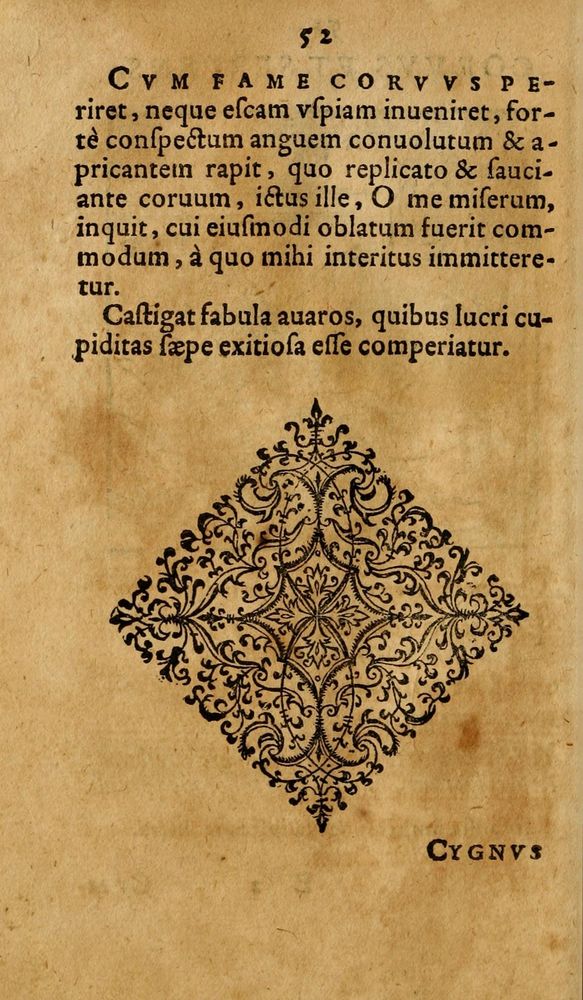 52
CVM FAME CORVVS PE-
riret, neque eſcam vſpiam inueniret, for-
tè conſpectum anguem conuolutum & a-
pricantem rapit, quo replicato & ſauci-
ante coruum, ictus ille, O me miſerum,
inquit, cui eiuſmodi oblatum fuerit com-
modum, à quo mihi interitus immittere-
tur.
Caſtigat fabula auaros, quibus lucri cu-
piditas ſæpe exitioſa eſſe comperiatur.
CYGNVS